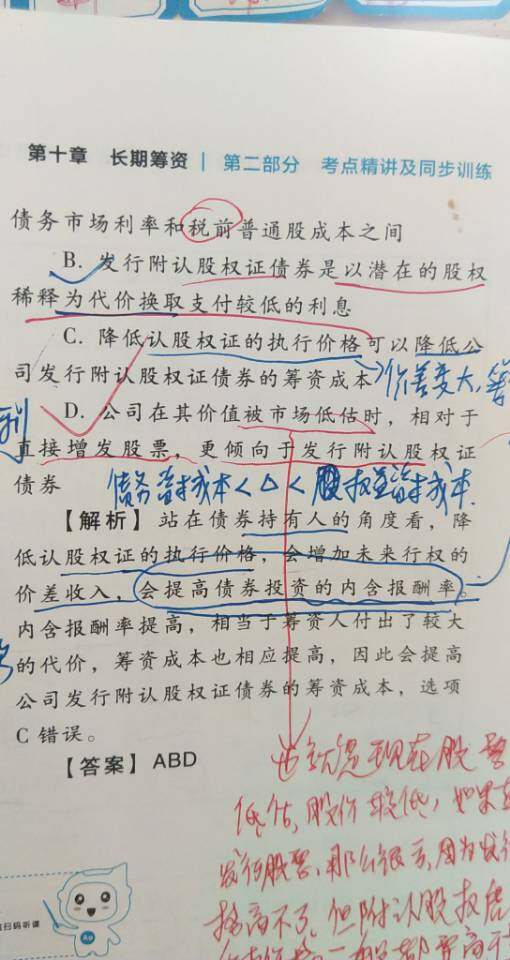 第十章 长期筹资 | 第二部分 考点精讲及同步训练
债务市场利率和税前普通股成本之间
B. 发行附认股权证债券是以潜在的股权
稀释为代价换取支付较低的利息
C. 降低认股权证的执行价格可以降低公
司发行附认股权证债券的筹资成本
价差变大,筹
D. 公司在其价值被市场低估时,相对于
直接增发股票,更倾向于发行附认股权证
债券
债务资本成本<△<股权资本成本
【解析】站在债券持有人的角度看,降
低认股权证的执行价格,会增加未来行权的
价差收入,会提高债券投资的内含报酬率。
内含报酬率提高,相当于筹资人付出了较大
的代价,筹资成本也相应提高,因此会提高
公司发行附认股权证债券的筹资成本,选项
C 错误。
【答案】ABD
也就是现在股票
低估,股价较低,如果
发行股票,那么很亏,因为发行
格高不了,但附认股权
扫码听课